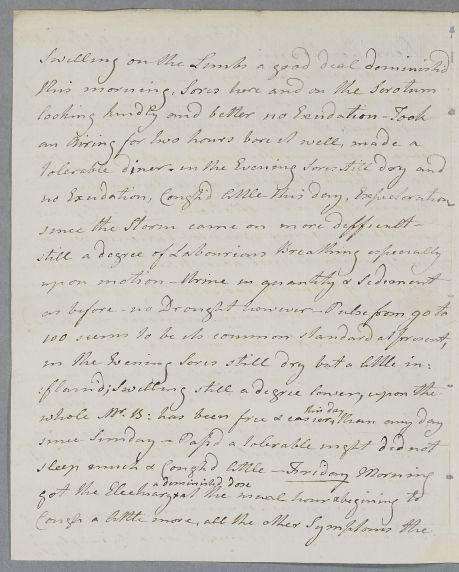 Swelling on the Limbs a good deal diminish'd
this morning, Sores here and on the Scrotum
looking kindly and better no Exudation – Took
an Airing for two hours bore it well, made a
tolerable diner. in the Evening Sores still dry and
no Exudation, Cough'd little this day, Expectoration
since the Storm came on more difficult –
still a degree of Labourious Breathing especially
upon motion – Urine in quantity & Sediment
as before – no Drought however – Pulse from 90 to
100 seems to be its common standard at present,
in the Evening Sores still dry but a little in:
:flam'd; Swelling still a degree lower, upon the
whole Mr. B: has been free & easier this day than any day
since Sunday – Pass'd a tolerable night did not
sleep much & Cough'd little – Friday Morning
got the Electuary a diminish'd dose at the usual hour & begining to
Cough a little more, all the other Symptoms the